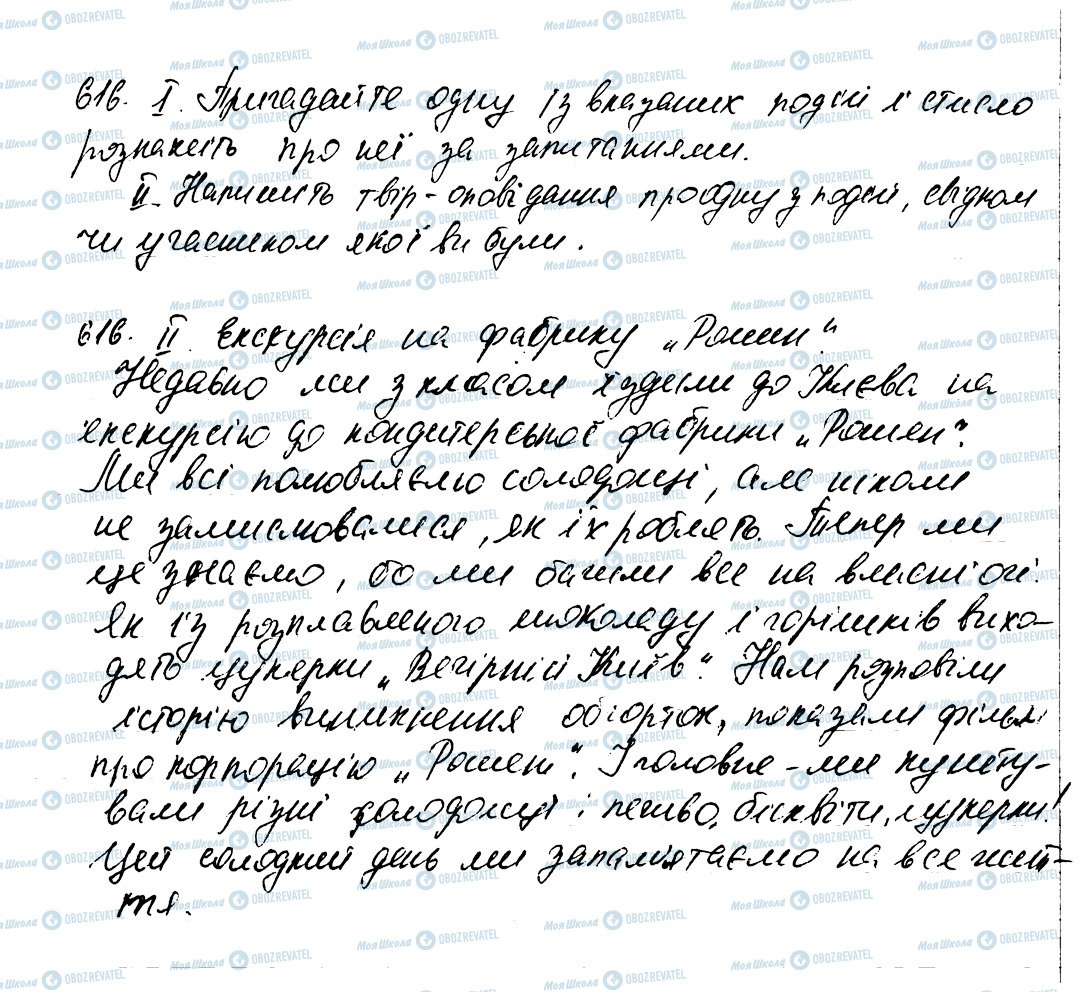 616. I. Пригадайте одну із вказаних подій і стисло
розкажіть про неї за запитаннями.
II. Напишіть твір-оповідання про одну з подій, свідком
чи учасником якої ви були.
616. II Екскурсія на фабрику „Рошен“.
Недавно ми з класом їздили до Києва на
екскурсію до кондитерської фабрики „Рошен“.
Ми всі полюбляємо солодощі, але ніколи
не замислювалися, як їх роблять. Тепер ми
це знаємо, бо ми бачили все на власні очі
Як із розплавленого шоколаду і горішків вихо-
дять цукерки „Вечірній Київ“. Нам розповіли
історію виникнення обгорток, показали фільм
про корпорацію „Рошен“. І головне - ми кушту-
вали різні солодощі: печиво, бісквіти, цукерки!
Цей солодкий день ми запам'ятаємо на все жит-
тя.